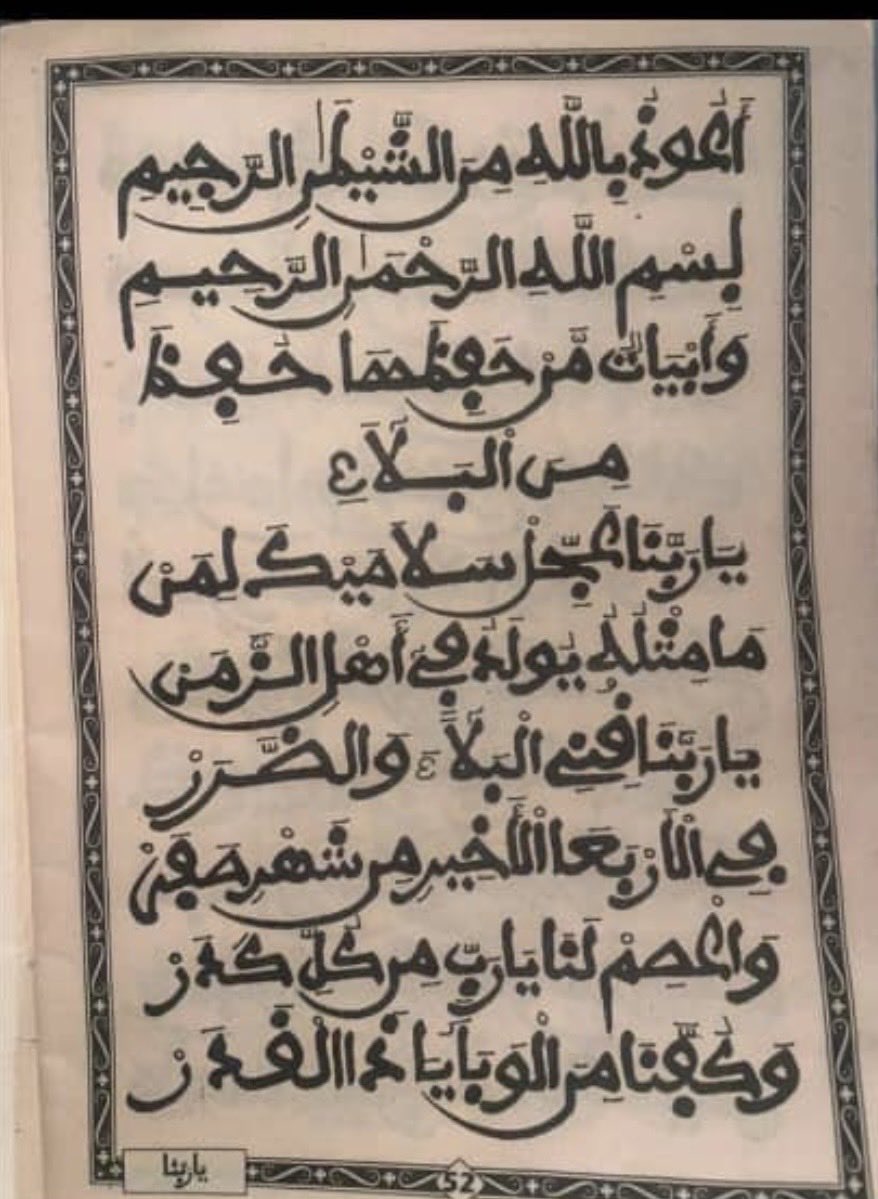 أَعُوذُ بِاللَّهِ مِنَ الشَّيْطَٰنِ الرَّجِيمِ
بِسْمِ اللَّهِ الرَّحْمَٰنِ الرَّحِيمِ
وَأَبْيَاتٌ مَّنْ حَفِظَهَا حُفِظَ
مِنَ الْبَلَآءِ
يَا رَبَّنَا عَجِّلْ سَلَامَيْكَ لِمَنْ
مَا مِثْلُهُ يُولَدُ فِي أَهْلِ الزَّمَنِ
يَا رَبَّنَا قِنِي الْبَلَآءَ وَالضَّرَرْ
فِي الْأَرْبَعَا الْأَخِيرِ مِن شَهْرِ صَفَرْ
وَاعْصِمْ لَنَا يَا رَبِّ مِن كُلِّ كَدَرْ
وَكُفَّنَا مِنَ الْوَبَا يَا ذَا الْقَدَرْ
ياربنا
52